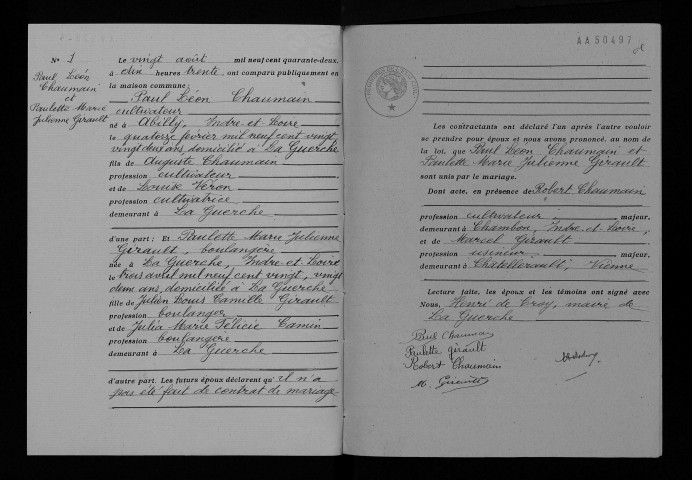 N° 1
Paul Léon
Chaumain
et
Paulette Marie
Julienne Girault
Le vingt août mil neuf cent quarante-deux,
à dix heures trente, ont comparu publiquement en
la maison commune:
Paul Léon Chaumain
cultivateur
né à Abilly, Indre et Loire
le quatorze février mil neuf cent vingt,
vingt deux ans, domicilié à La Guerche
fils de Auguste Chaumain
profession cultivateur
et de Louise Véron
profession cultivatrice
demeurant à La Guerche
d'une part; Et Paulette Marie Julienne
Girault, boulangère
née à La Guerche, Indre et Loire
le trois avril mil neuf cent vingt, vingt
deux ans, domiciliée à La Guerche
fille de Julien Louis Camille Girault
profession boulanger
et de Julia Marie Félicie Camin
profession boulangère
demeurant à La Guerche
d'autre part. Les futurs époux déclarent qu'il n'a
pas été fait de contrat de mariage
AA50497
Les contractants ont déclaré l'un après l'autre vouloir
se prendre pour époux et nous avons prononcé, au nom de
la loi, que Paul Léon Chaumain et
Paulette Marie Julienne Girault
sont unis par le mariage.
Dont acte, en présence de Robert Chaumain
profession cultivateur majeur,
demeurant à Chambon, Indre et Loire,
et de Marcel Girault
profession usineur, majeur,
demeurant à Châtellerault, Vienne
Lecture faite, les époux et les témoins ont signé avec
Nous, Henri de Croy, maire de
La Guerche
Paul Chaumain
Paulette Girault
Robert Chaumain
M. Girault